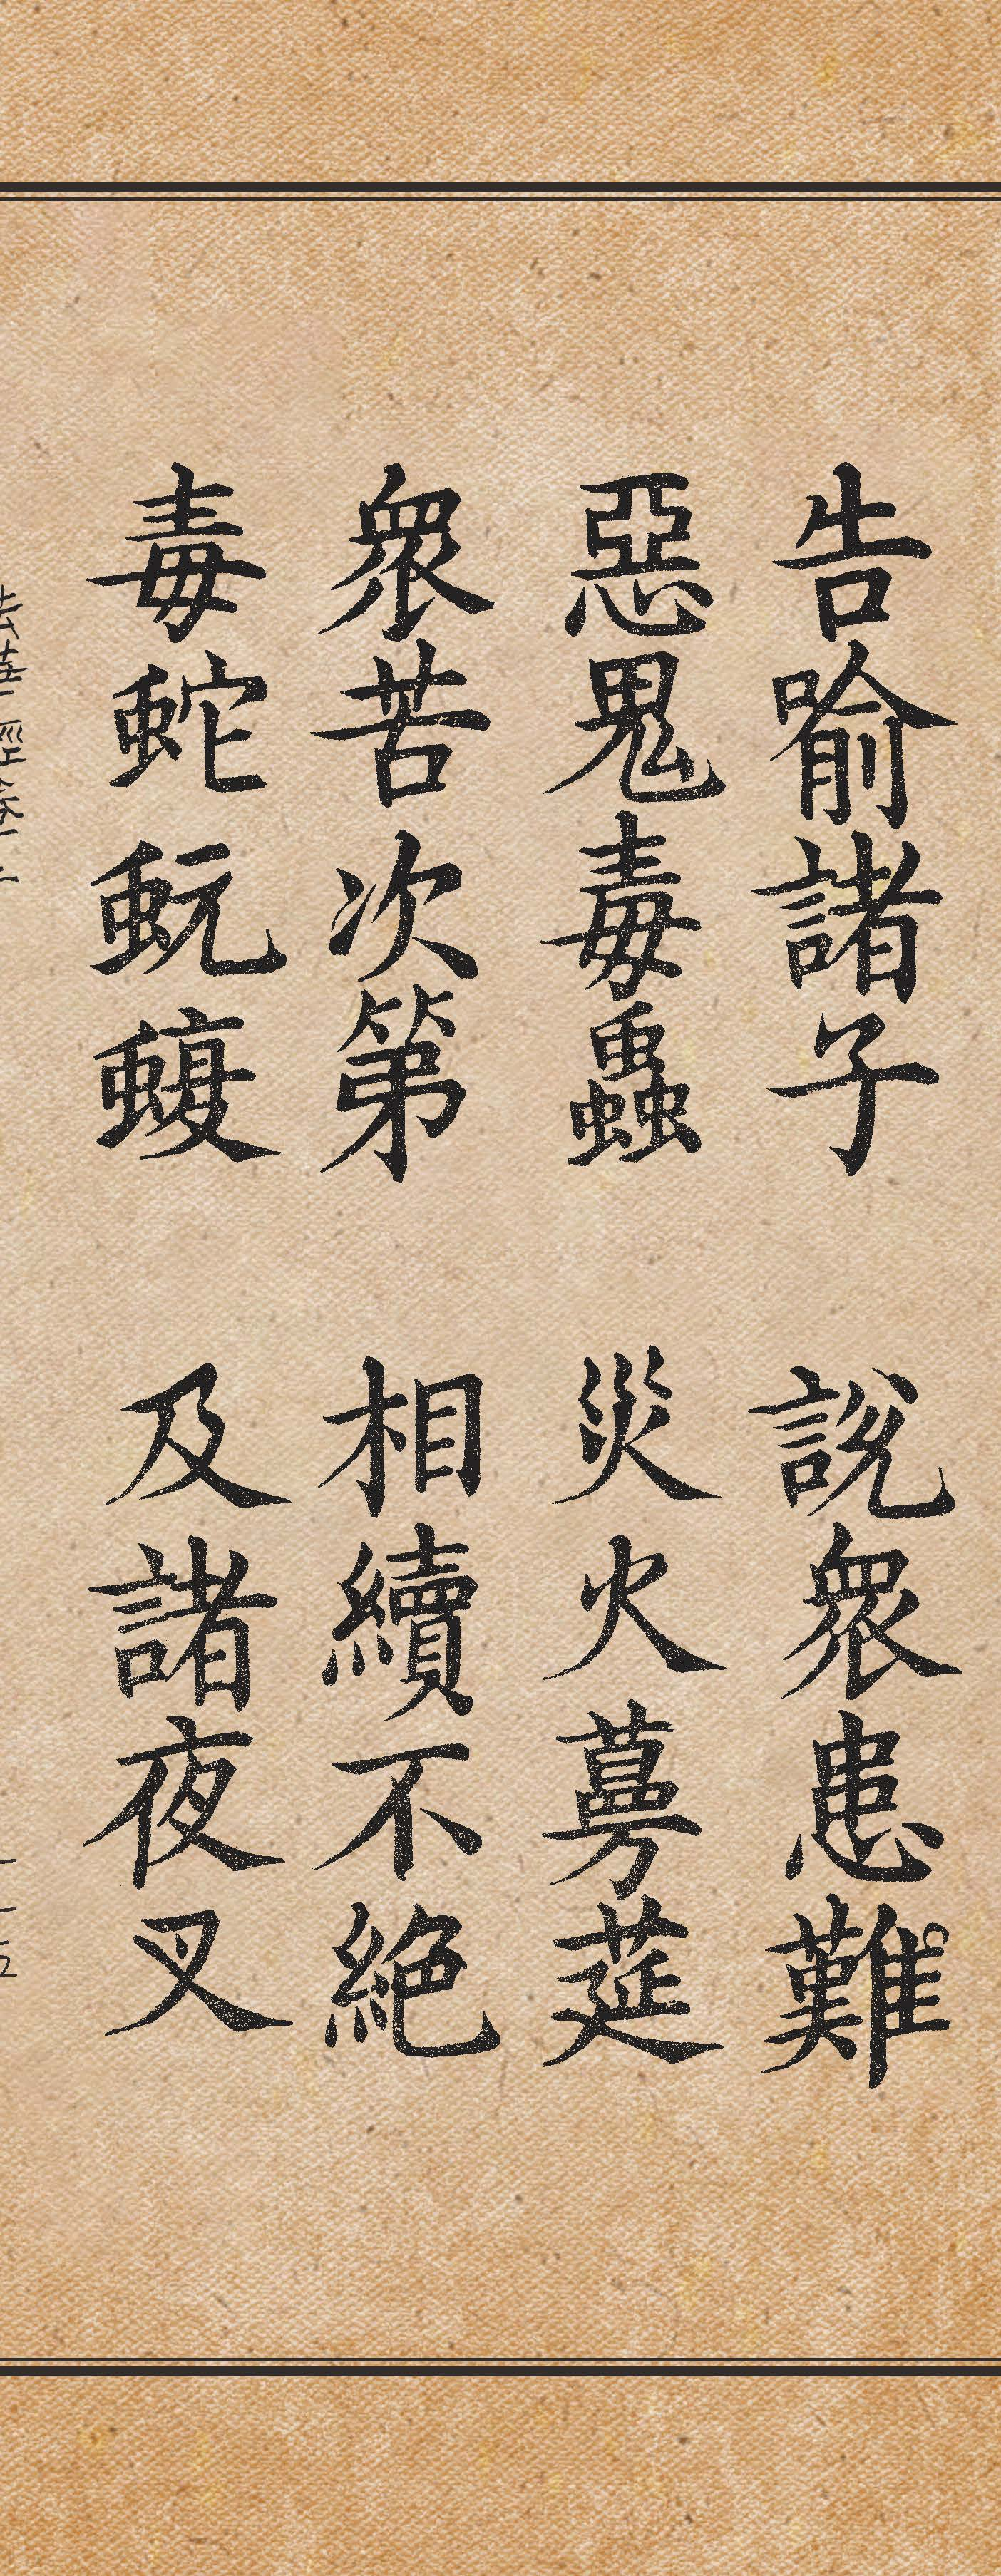 告喻諸子 說衆患難
惡鬼毒蟲 災火蔓莚
衆苦次第 相續不絕
毒蛇蚖蝮 及諸夜叉